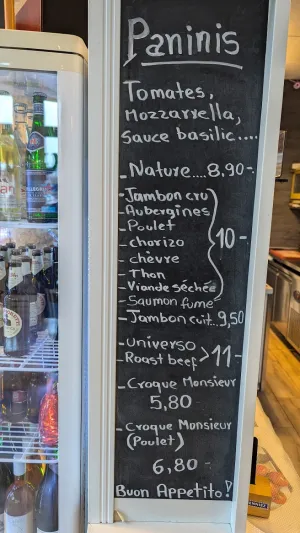 Paninis
Tomates,
Mozzarrella,
Sauce basilic....
- Nature....8.90-
- Jambon cru
- Aubergines
- Poulet
- chorizo
- chèvre
- Thon
- Viande séchée
- Saumon fumé
10-
- Jambon cuit...9,50
- universo
- Roast beef > 11-
- Croque Monsieur
5,80
- Croque Monsieur
(Poulet)
6,80 -
Buon Appetito!